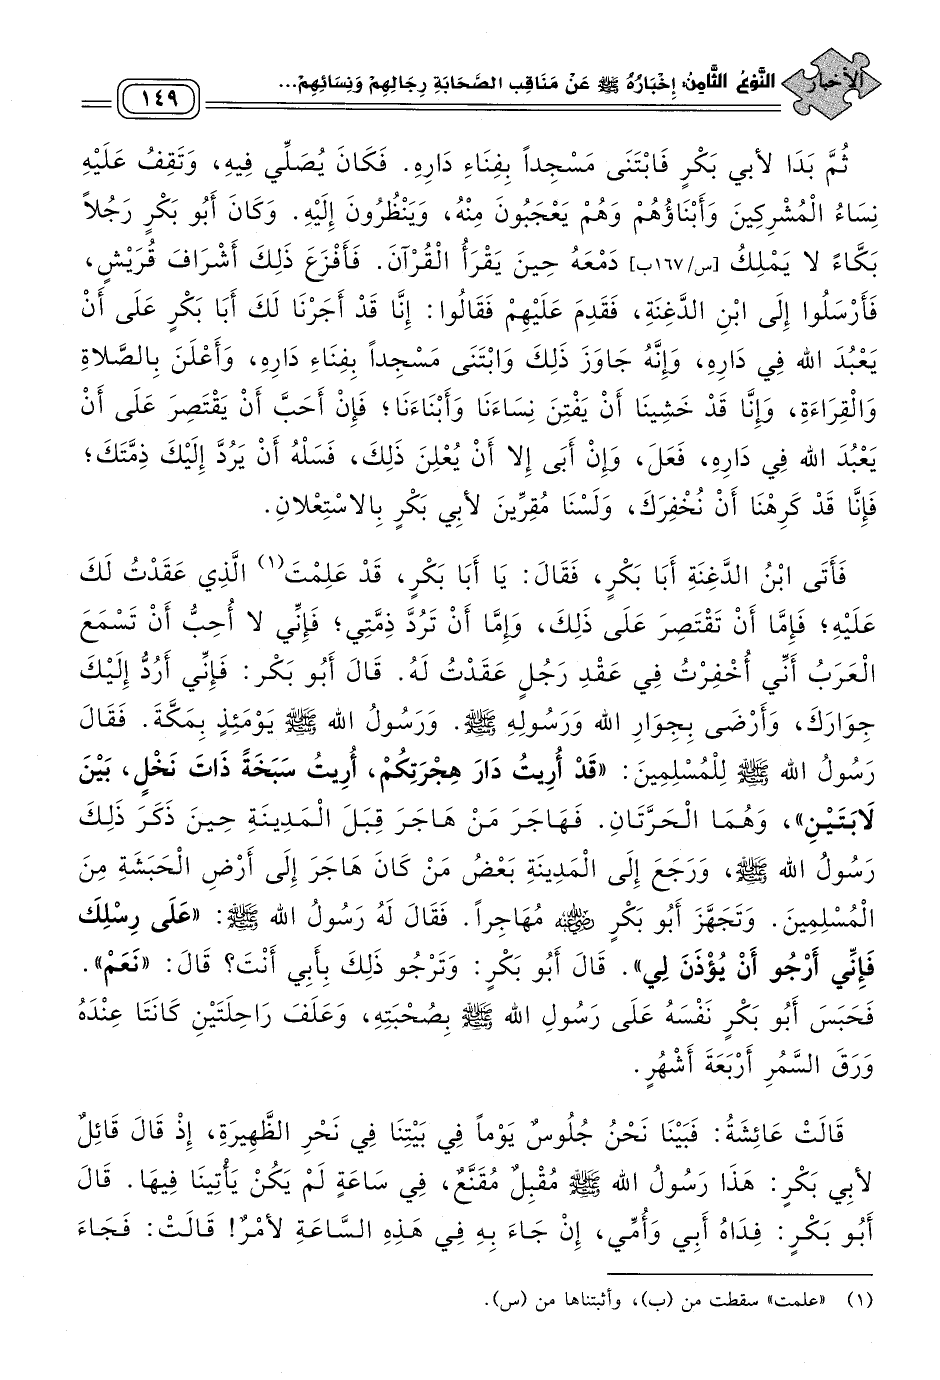 الأخبار النَّوْعُ الثَّامِنُ: إِخْبَارُهُ ﷺ عَنْ مَنَاقِبِ الصَّحَابَةِ رِجَالِهِمْ وَنِسَائِهِمْ...
١٤٩
ثُمَّ بَدَا لأبي بَكْرٍ فَابْتَنَى مَسْجِداً بِفِنَاءِ دَارِهِ. فَكَانَ يُصَلِّي فِيهِ، وَتَقِفُ عَلَيْهِ
نِسَاءُ الْمُشْرِكِينَ وَأَبْنَاؤُهُمْ وَهُمْ يَعْجَبُونَ مِنْهُ، وَيَنْظُرُونَ إِلَيْهِ. وَكَانَ أَبُو بَكْرٍ رَجُلاً
بَكَّاءً لا يَمْلِكُ [س/١٦٧ب] دَمْعَهُ حِينَ يَقْرَأُ الْقُرْآنَ. فَأَفْزَعَ ذَلِكَ أَشْرَافَ قُرَيْشٍ،
فَأَرْسَلُوا إِلَى ابْنِ الدَّغِنَةِ، فَقَدِمَ عَلَيْهِمْ فَقَالُوا: إِنَّا قَدْ أَجَرْنَا لَكَ أَبَا بَكْرٍ عَلَى أَنْ
يَعْبُدَ الله فِي دَارِهِ، وَإِنَّهُ جَاوَزَ ذَلِكَ وَابْتَنَى مَسْجِداً بِفِنَاءِ دَارِهِ، وَأَعْلَنَ بِالصَّلاةِ
وَالْقِرَاءَةِ، وَإِنَّا قَدْ خَشِينَا أَنْ يَفْتِنَ نِسَاءَنَا وَأَبْنَاءَنَا؛ فَإِنْ أَحَبَّ أَنْ يَقْتَصِرَ عَلَى أَنْ
يَعْبُدَ الله فِي دَارِهِ، فَعَلَ، وَإِنْ أَبَى إِلا أَنْ يُعْلِنَ ذَلِكَ، فَسَلْهُ أَنْ يَرُدَّ إِلَيْكَ ذِمَّتَكَ؛
فَإِنَّا قَدْ كَرِهْنَا أَنْ نُخْفِرَكَ، وَلَسْنَا مُقِرِّينَ لأبِي بَكْرٍ بِالاسْتِعْلانِ.
فَأَتَى ابْنُ الدَّغِنَةِ أَبَا بَكْرٍ، فَقَالَ: يَا أَبَا بَكْرٍ، قَدْ عَلِمْتَ(١) الَّذِي عَقَدْتُ لَكَ
عَلَيْهِ؛ فَإِمَّا أَنْ تَقْتَصِرَ عَلَى ذَلِكَ، وَإِمَّا أَنْ تَرُدَّ ذِمَّتِي؛ فَإِنِّي لا أُحِبُّ أَنْ تَسْمَعَ
الْعَرَبُ أَنِّي أُخْفِرْتُ فِي عَقْدِ رَجُلٍ عَقَدْتُ لَهُ. قَالَ أَبُو بَكْرٍ: فَإِنِّي أَرُدُّ إِلَيْكَ
جِوَارَكَ، وَأَرْضَى بِجِوَارِ الله وَرَسُولِهِ ﷺ. وَرَسُولُ الله ﷺ يَوْمَئِذٍ بِمَكَّةَ. فَقَالَ
رَسُولُ الله ﷺ لِلْمُسْلِمِينَ: «قَدْ أُرِيتُ دَارَ هِجْرَتِكُمْ، أُرِيتُ سَبَخَةً ذَاتَ نَخْلٍ، بَيْنَ
لَابَتَيْنِ»، وَهُمَا الْحَرَّتَانِ. فَهَاجَرَ مَنْ هَاجَرَ قِبَلَ الْمَدِينَةِ حِينَ ذَكَرَ ذَلِكَ
رَسُولُ الله ﷺ، وَرَجَعَ إِلَى الْمَدِينَةِ بَعْضُ مَنْ كَانَ هَاجَرَ إِلَى أَرْضِ الْحَبَشَةِ مِنَ
الْمُسْلِمِينَ. وَتَجَهَّزَ أَبُو بَكْرٍ رضي الله عنه مُهَاجِراً. فَقَالَ لَهُ رَسُولُ الله ﷺ: «عَلَى رِسْلِكَ
فَإِنِّي أَرْجُو أَنْ يُؤْذَنَ لِي». قَالَ أَبُو بَكْرٍ: وَتَرْجُو ذَلِكَ بِأَبِي أَنْتَ؟ قَالَ: «نَعَمْ».
فَحَبَسَ أَبُو بَكْرٍ نَفْسَهُ عَلَى رَسُولِ الله ﷺ بِصُحْبَتِهِ، وَعَلَفَ رَاحِلَتَيْنِ كَانَتَا عِنْدَهُ
وَرَقَ السَّمُرِ أَرْبَعَةَ أَشْهُرٍ.
قَالَتْ عَائِشَةُ: فَبَيْنَا نَحْنُ جُلُوسٌ يَوْماً فِي بَيْتِنَا فِي نَحْرِ الظَّهِيرَةِ، إِذْ قَالَ قَائِلٌ
لأبِي بَكْرٍ: هَذَا رَسُولُ الله ﷺ مُقْبِلٌ مُقَنَّعٌ، فِي سَاعَةٍ لَمْ يَكُنْ يَأْتِينَا فِيهَا. قَالَ
أَبُو بَكْرٍ: فِدَاهُ أَبِي وَأُمِّي، إِنْ جَاءَ بِهِ فِي هَذِهِ السَّاعَةِ لأمْرٌ! قَالَتْ: فَجَاءَ
(١) «علمت» سقطت من (ب)، وأثبتناها من (س).